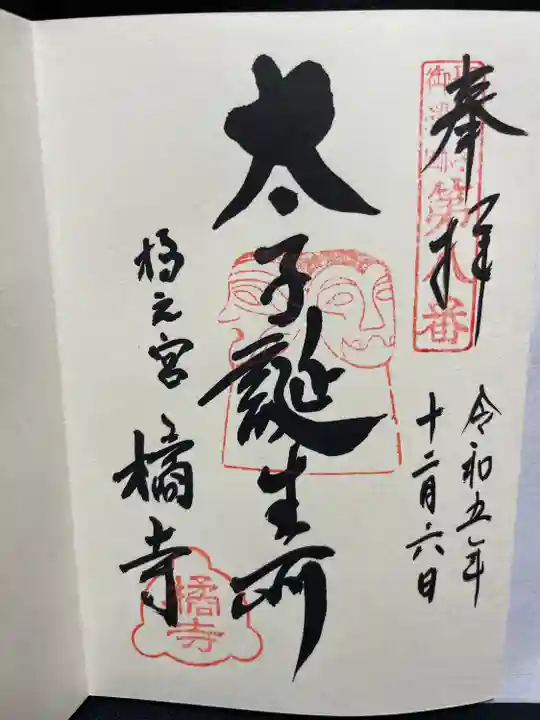 奉拝
第八番
令和五年
十二月六日
太子誕生所
橘之宮
橘寺
橘寺